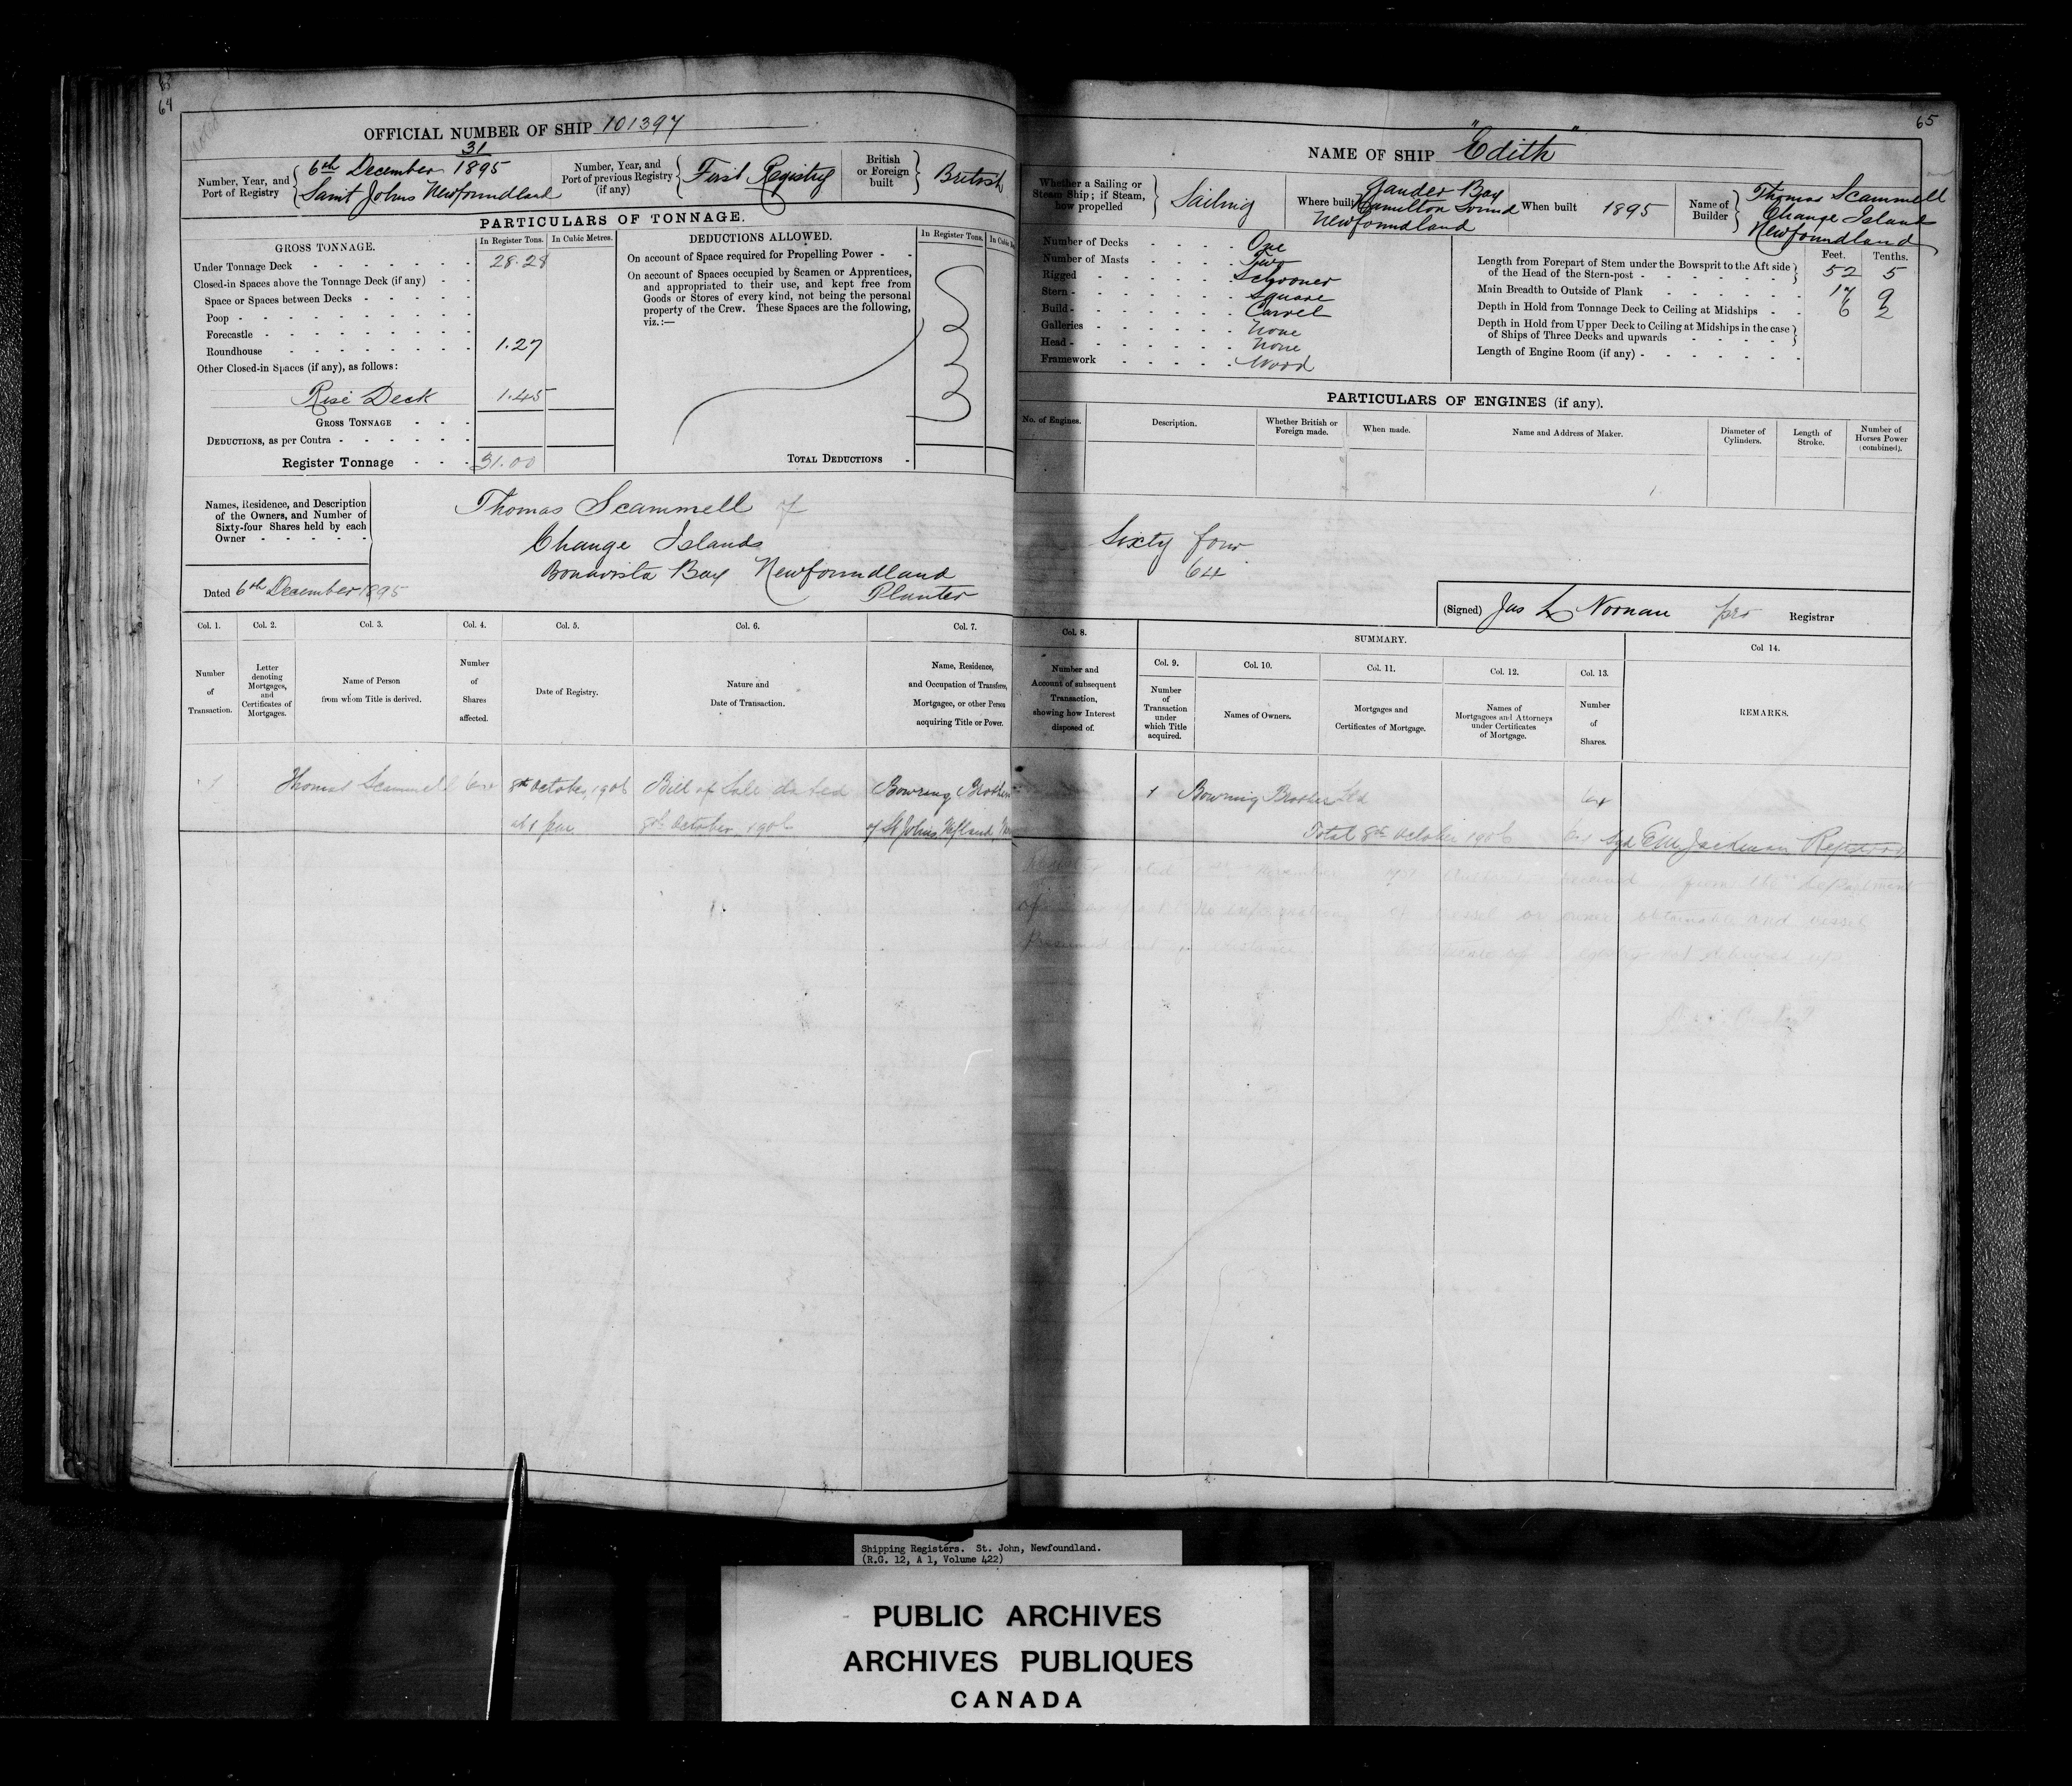 64
OFFICIAL NUMBER OF SHIP 101397
Number, Year, and Port of Registry
31
6th December 1895
Saint Johns Newfoundland
Number, Year, and Port of previous Registry (if any)
First Registry
British or Foreign built
British
PARTICULARS OF TONNAGE.
GROSS TONNAGE.
In Register Tons.
In Cubic Metres.
Under Tonnage Deck 28.28
Closed-in Spaces above the Tonnage Deck (if any)
Space or Spaces between Decks
Poop
Forecastle
Roundhouse 1.27
Other Closed-in Spaces (if any), as follows:
Rise Deck 1.45
GROSS TONNAGE
DEDUCTIONS, as per Contra
Register Tonnage 31.00
DEDUCTIONS ALLOWED.
In Register Tons.
On account of Space required for Propelling Power
On account of Spaces occupied by Seamen or Apprentices,
and appropriated to their use, and kept free from
Goods or Stores of every kind, not being the personal
property of the Crew. These Spaces are the following,
viz.:—
TOTAL DEDUCTIONS
Names, Residence, and Description
of the Owners, and Number of
Sixty-four Shares held by each
Owner
Thomas Scammell of
Change Islands
Bonavista Bay Newfoundland
Planter
Dated 6th December 1895
Col. 1.
Number of Transaction.
Col. 2.
Letter denoting Mortgages, and Certificates of Mortgages.
Col. 3.
Name of Person from whom Title is derived.
Col. 4.
Number of Shares affected.
Col. 5.
Date of Registry.
Col. 6.
Nature and Date of Transaction.
Col. 7.
Name, Residence, and Occupation of Transferee, Mortgagee, or other Person acquiring Title or Power.
1 Thomas Scammell 64 8th October 1906 Bill of Sale dated Bowring Brothers
at 1 8th October 1906 of St Johns Nfland
65
NAME OF SHIP "Edith"
Whether a Sailing or Steam Ship; if Steam, how propelled
Sailing
Where built
Gander Bay
Hamilton Sound
Newfoundland
When built 1895
Name of Builder
Thomas Scammell
Change Island
Newfoundland
Number of Decks One
Number of Masts Two
Rigged Schooner
Stern Square
Build Carvel
Galleries None
Head None
Framework Wood
Feet. Tenths.
Length from Forepart of Stem under the Bowsprit to the Aft side
of the Head of the Stern-post 52 5
Main Breadth to Outside of Plank 17 9
Depth in Hold from Tonnage Deck to Ceiling at Midships 6 2
Depth in Hold from Upper Deck to Ceiling at Midships in the case
of Ships of Three Decks and upwards
Length of Engine Room (if any)
PARTICULARS OF ENGINES (if any).
No. of Engines.
Description.
Whether British or Foreign made.
When made.
Name and Address of Maker.
Diameter of Cylinders.
Length of Stroke.
Number of Horses Power (combined).
Sixty four
64
(Signed) Jas L Noonan pro Registrar
Col. 8.
Number and Account of subsequent Transaction, showing how Interest disposed of.
SUMMARY.
Col. 9.
Number of Transaction under which Title acquired.
Col. 10.
Names of Owners.
Col. 11.
Mortgages and Certificates of Mortgage.
Col. 12.
Names of Mortgagees and Attorneys under Certificates of Mortgage.
Col. 13.
Number of Shares.
Col 14.
REMARKS.
1 Bowring Brothers Ltd 64
Total 8th October 1906 64 Sgd E M Jackman Registrar
received from the Department
of vessel or owner obtainable and vessel
Shipping Registers. St. John, Newfoundland.
(R.G. 12, A 1, Volume 422)
PUBLIC ARCHIVES
ARCHIVES PUBLIQUES
CANADA